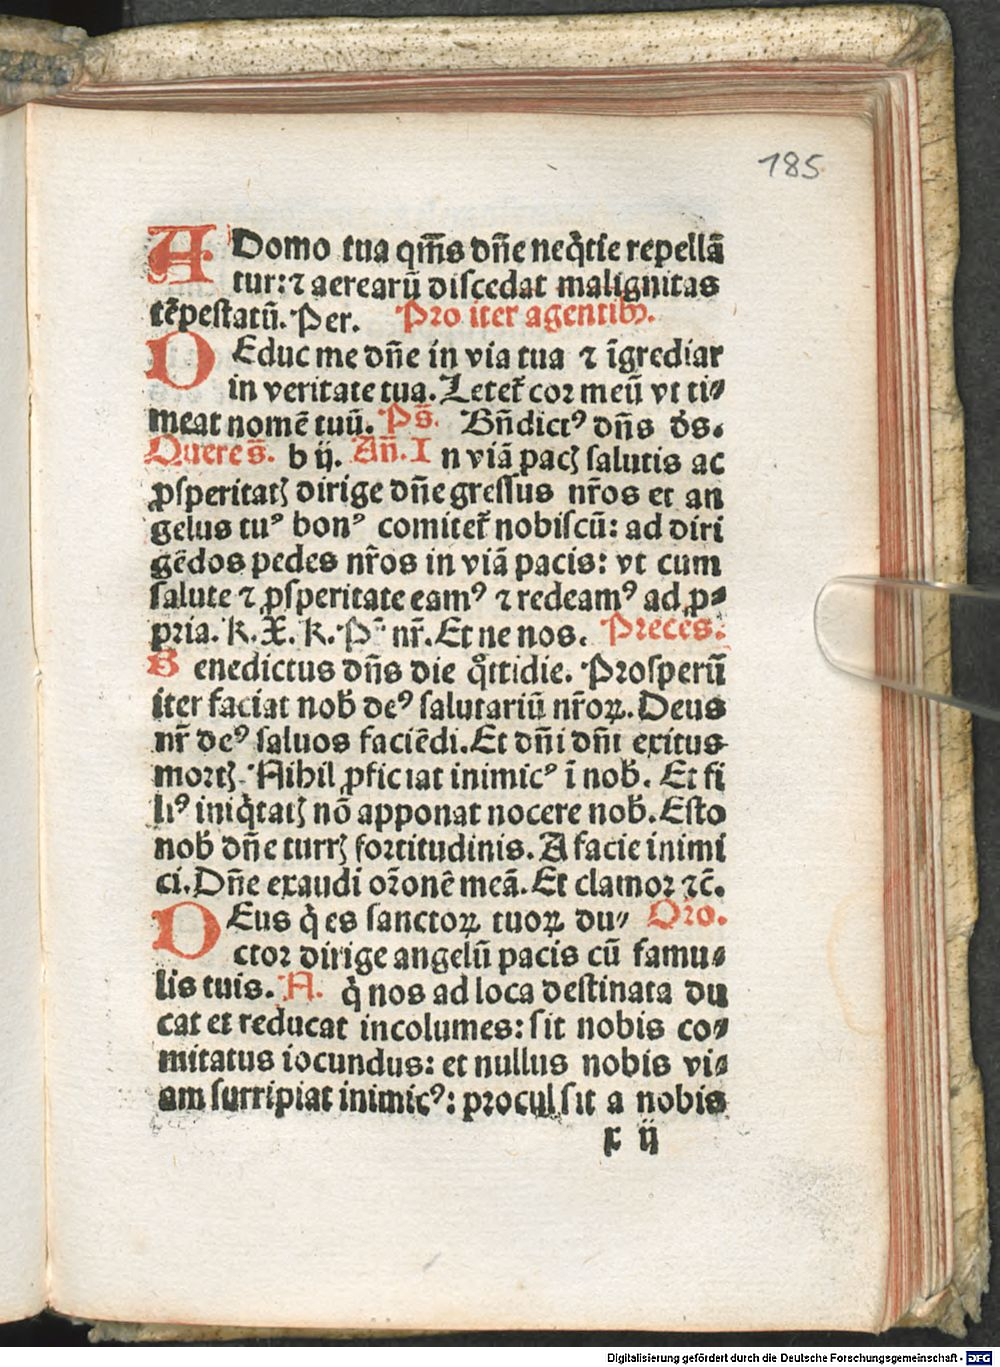 185
A Domo tua qm̄s dn̄e neq̇tie repellā
tur: ⁊ aerearū discedat malignitas
tēpestatū. Per. Pro iter agentibꝰ.
D Educ me dn̄e in via tua ⁊ īgrediar
in veritate tua. Letet᷑ cor meū vt ti⸗
meat nomē tuū. Ps̄. Bn̄dictꝰ dn̄s ds̄.
Quere s̄. b ij. An̄. In viā pacꝭ salutis ac
ꝓsperitatꝭ dirige dn̄e gressus nr̄os et an
gelus tuꝰ bonꝰ comitet᷑ nobiscū: ad diri
gēdos pedes nr̄os in viā pacis: vt cum
salute ⁊ ꝓsperitate eamꝰ ⁊ redeamꝰ ad ꝓ⸗
pria. k. X. k. P nr̄. Et ne nos. Preces.
Benedictus dn̄s die qͦttidie. Prosperū
iter faciat nob̄ deꝰ salutariū nr̄oꝝ. Deus
nr̄ deꝰ saluos faciēdi. Et dn̄i dn̄i exitus
mortꝭ. Nihil ꝓficiat inimicꝰ ī nob̄. Et fi
liꝰ iniq̇tatꝭ nō apponat nocere nob̄. Esto
nob̄ dn̄e turrꝭ fortitudinis. A facie inimi
ci. Dn̄e exaudi orōnē meā. Et clamor ⁊c̄.
D Eus q̇ es sanctoꝝ tuoꝝ du⸗ Oro.
ctor dirige angelū pacis cū famu⸗
lis tuis. A. q̇ nos ad loca destinata du
cat et reducat incolumes: sit nobis co⸗
mitatus iocundus: et nullus nobis vi⸗
am surripiat inimicꝰ: procul sit a nobis
x ij
Digitalisierung gefördert durch die Deutsche Forschungsgemeinschaft - DFG